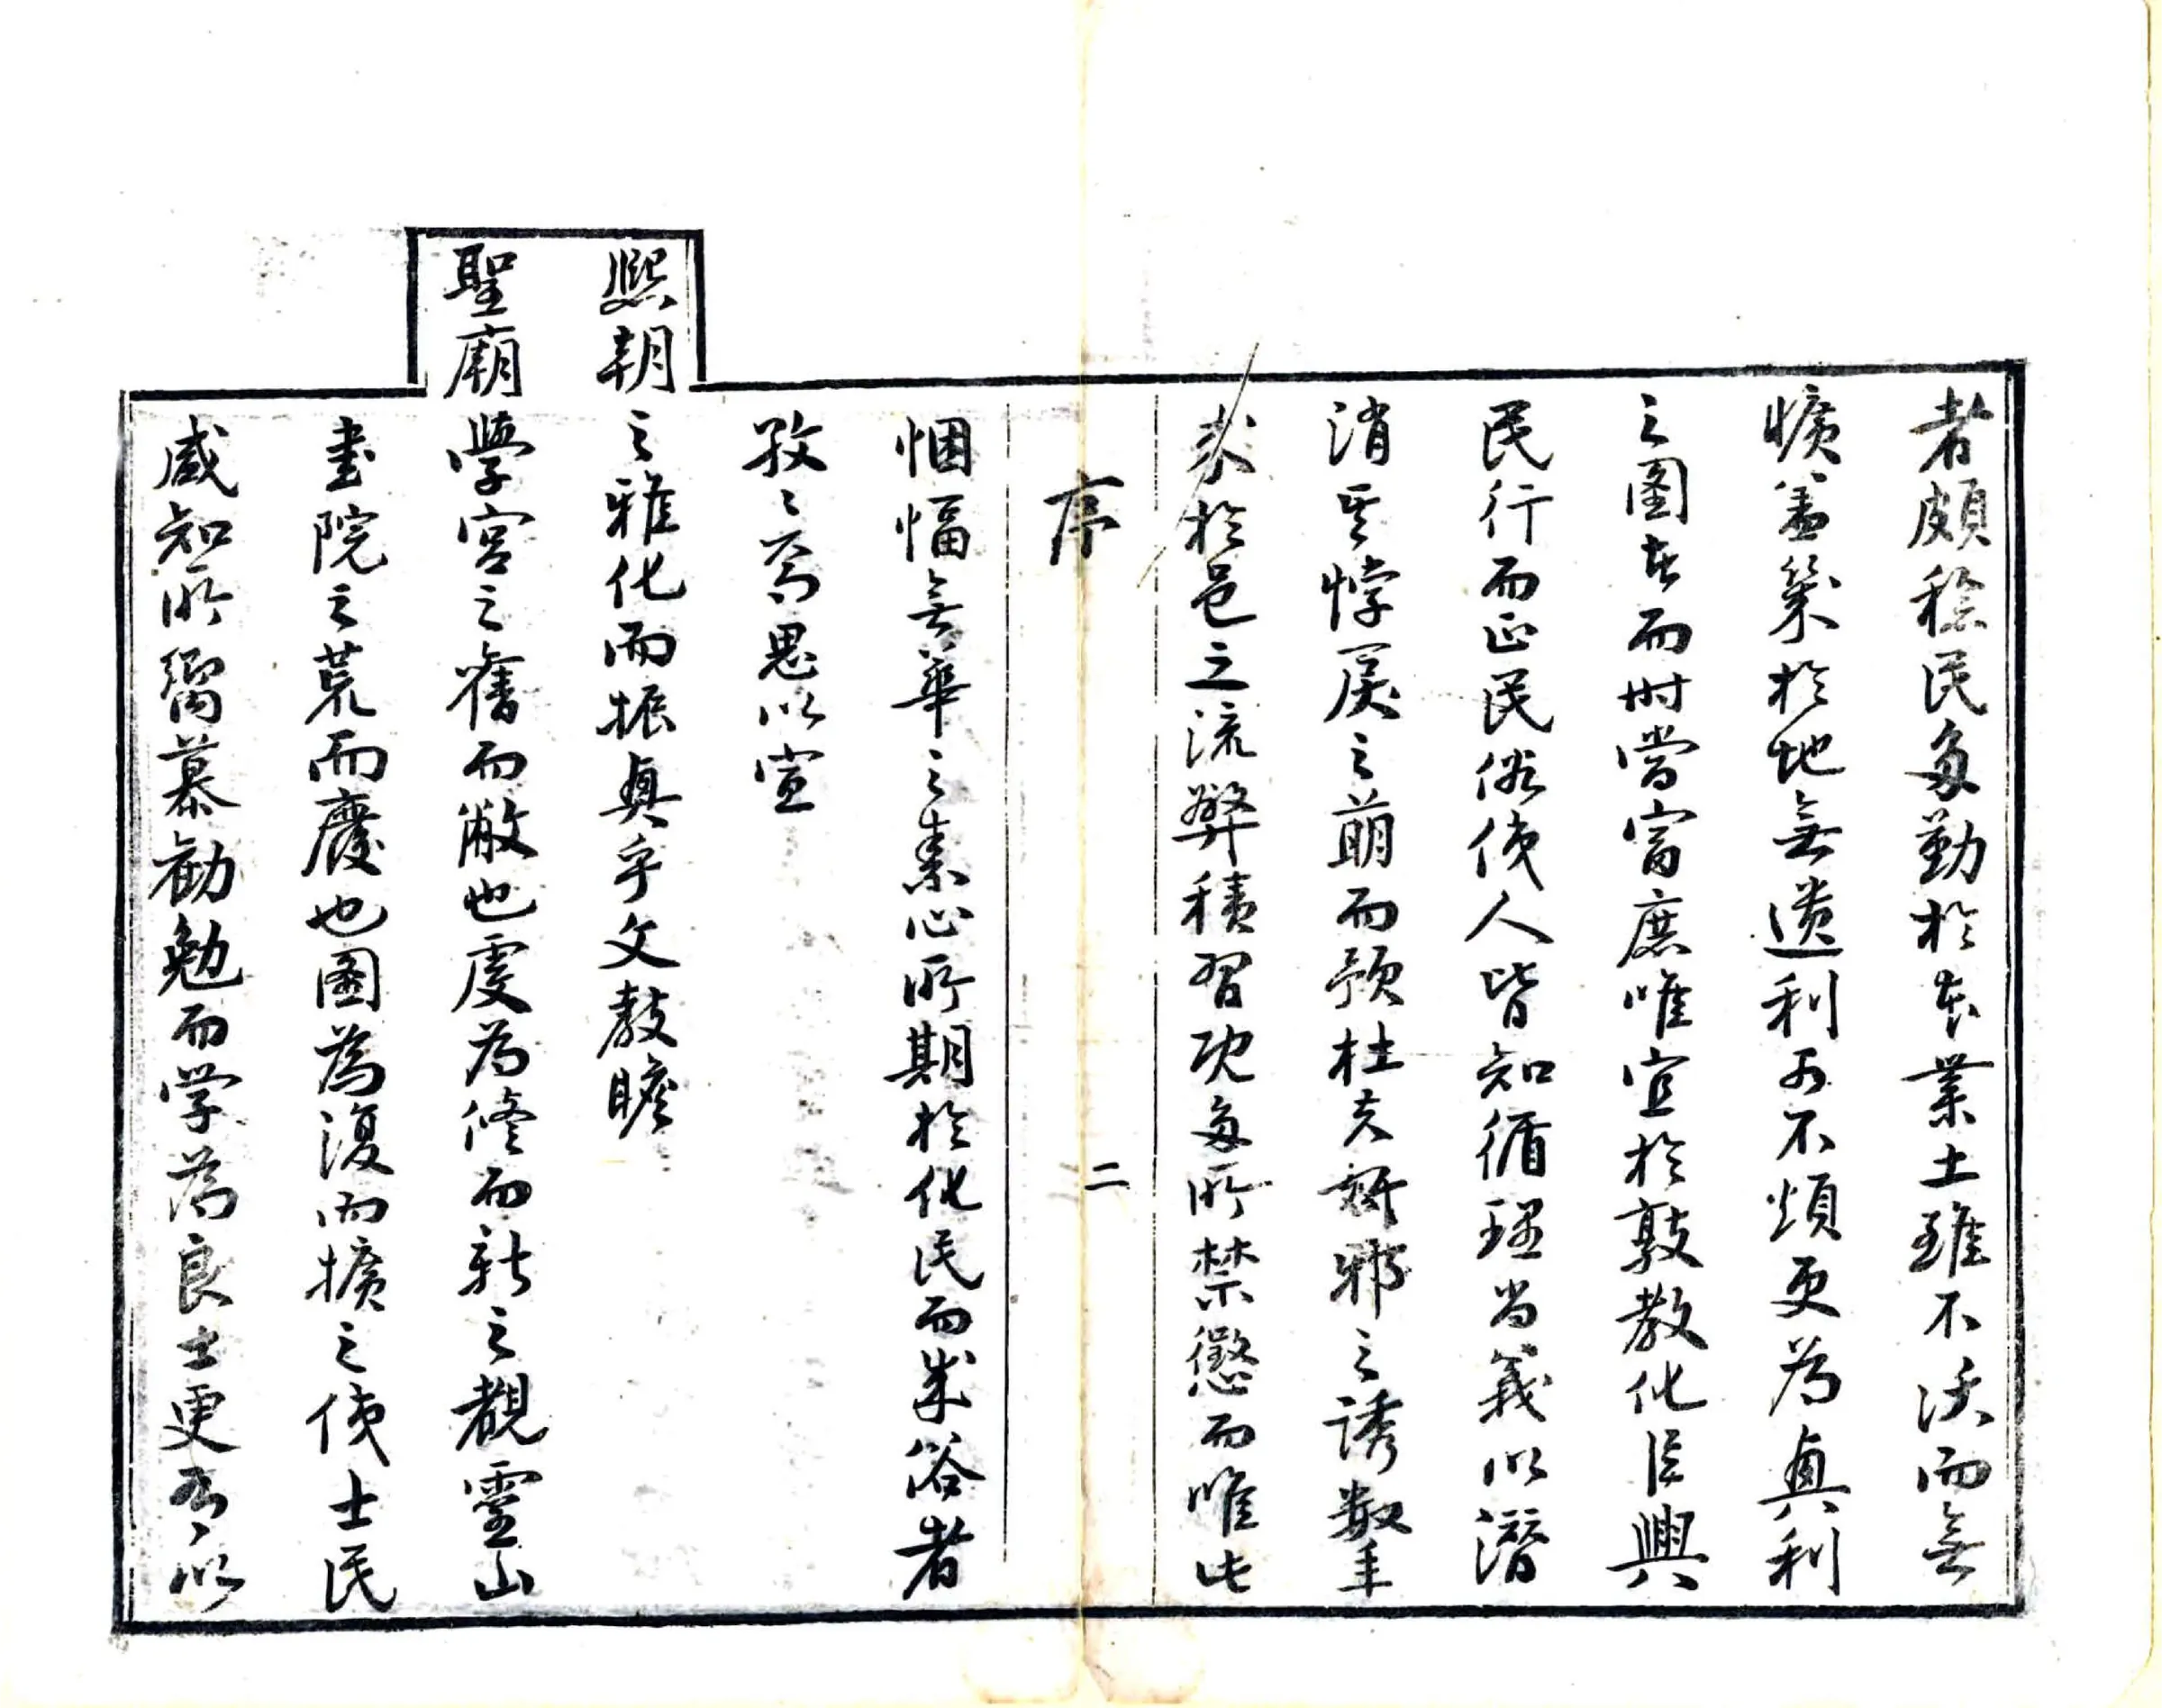 者頗稔民多勤於本業土雖不沃而無
曠蓋築於地無遺利可不煩更為興利
之圖在而時當富庶唯宜於敦教化以興
民行而正民俗使人皆知循理尚義以潛
消其悖戾之萌而預杜夫奸邪之誘數年
來於邑之流弊積習既多所禁懲而唯此
序
二
悃愊無華之素心所期於化民而成俗者
孜〻焉思以宣
熙朝之雅化而振興乎文教瞻
聖廟學宮之舊而敝也虔為修而新之觀靈山
書院之荒而廢也圖為復而擴之使士民
咸知所嚮慕勸勉而学為良士更有以